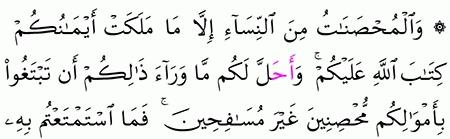 ۞ وَٱلْمُحْصَنَـٰتُ مِنَ ٱلنِّسَآءِ إِلَّا مَا مَلَكَتْ أَيْمَـٰنُكُمْ
كِتَـٰبَ ٱللَّهِ عَلَيْكُمْ ۚ وَأَحَلَّ لَكُم مَّا وَرَآءَ ذَٰلِكُمْ أَن تَبْتَغُوا۟
بِأَمْوَٰلِكُم مُّحْصِنِينَ غَيْرَ مُسَـٰفِحِينَ ۚ فَمَا ٱسْتَمْتَعْتُم بِهِۦ